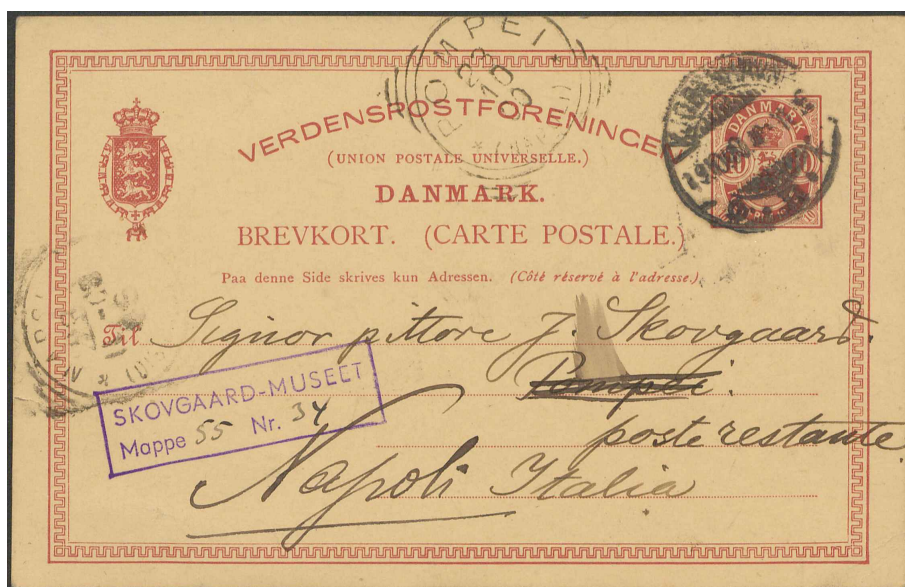 POMPEI
23
10
(NAPOLI)
VERDENSPOSTFORENINGEN
(UNION POSTALE UNIVERSELLE.)
DANMARK.
BREVKORT. (CARTE POSTALE.)
Paa denne Side skrives kun Adressen. (Côté réservé à l'adresse.)
DANMARK
10
10
Til Signor pittore J. Skovgaard.
Pompei.
poste restante
Napoli Italia
SKOVGAARD-MUSEET
Mappe 55 Nr. 34